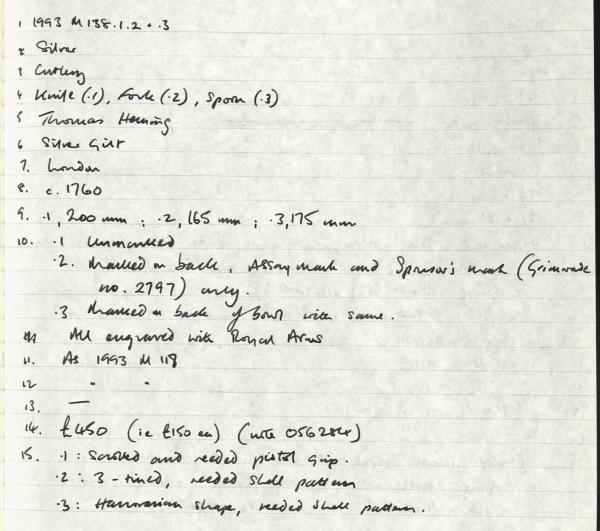 1 1993 M 138.1.2 + .3
2 Silver
3 Cutlery
4 Knife (.1), Fork (.2), Spoon (.3)
5 Thomas Heming
6 Silver Gilt
7. London
8. c. 1760
9. .1, 200 mm ; .2, 165 mm ; .3, 175 mm
10. .1 Unmarked
.2. Marked on back, Assay mark and Sponsor's mark (Grimwade
no. 2797) only.
.3 Marked on back of bowl with same.
All engraved with Royal Arms
11. As 1993 M 118
12 " "
13. —
14. £450 (ie £150 ea) (note 056284)
15. .1 : Scrolled and reeded pistol grip.
.2 : 3-tined, reeded shell pattern
.3 : Hanoverian shape, reeded shell pattern.